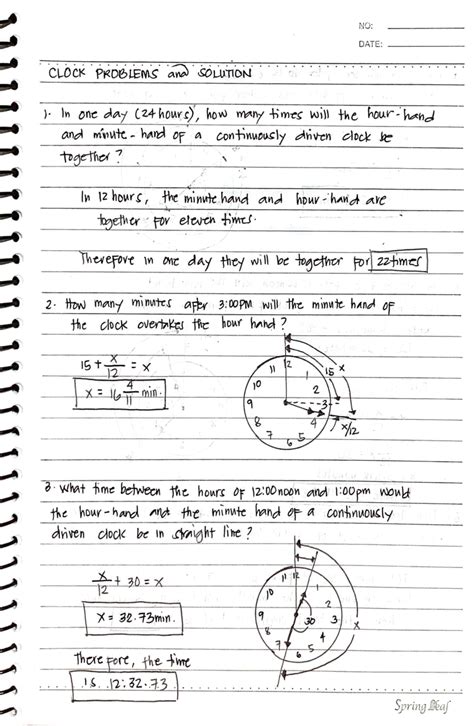 NO:
DATE:
CLOCK PROBLEMS and SOLUTION
1. In one day (24 hours), how many times will the hour-hand
and minute-hand of a continuously driven clock be
together?
In 12 hours, the minute hand and hour-hand are
together for eleven times.
Therefore in one day they will be together for 22 times
2. How many minutes after 3:00 PM will the minute hand of
the clock overtakes the hour hand?
15 + x/12 = x
x = 16 4/11 min.
11 12 1 2 3 4 5 6 7 8 9 10
15 x
x/12
3. What time between the hours of 12:00 noon and 1:00 pm would
the hour-hand and the minute hand of a continuously
driven clock be in straight line?
x/12 + 30 = x
x = 32.73 min.
11 12 1 2 3 4 5 6 7 8 9 10
30 x
Therefore, the time
is 12:32.73
Spring Leaf